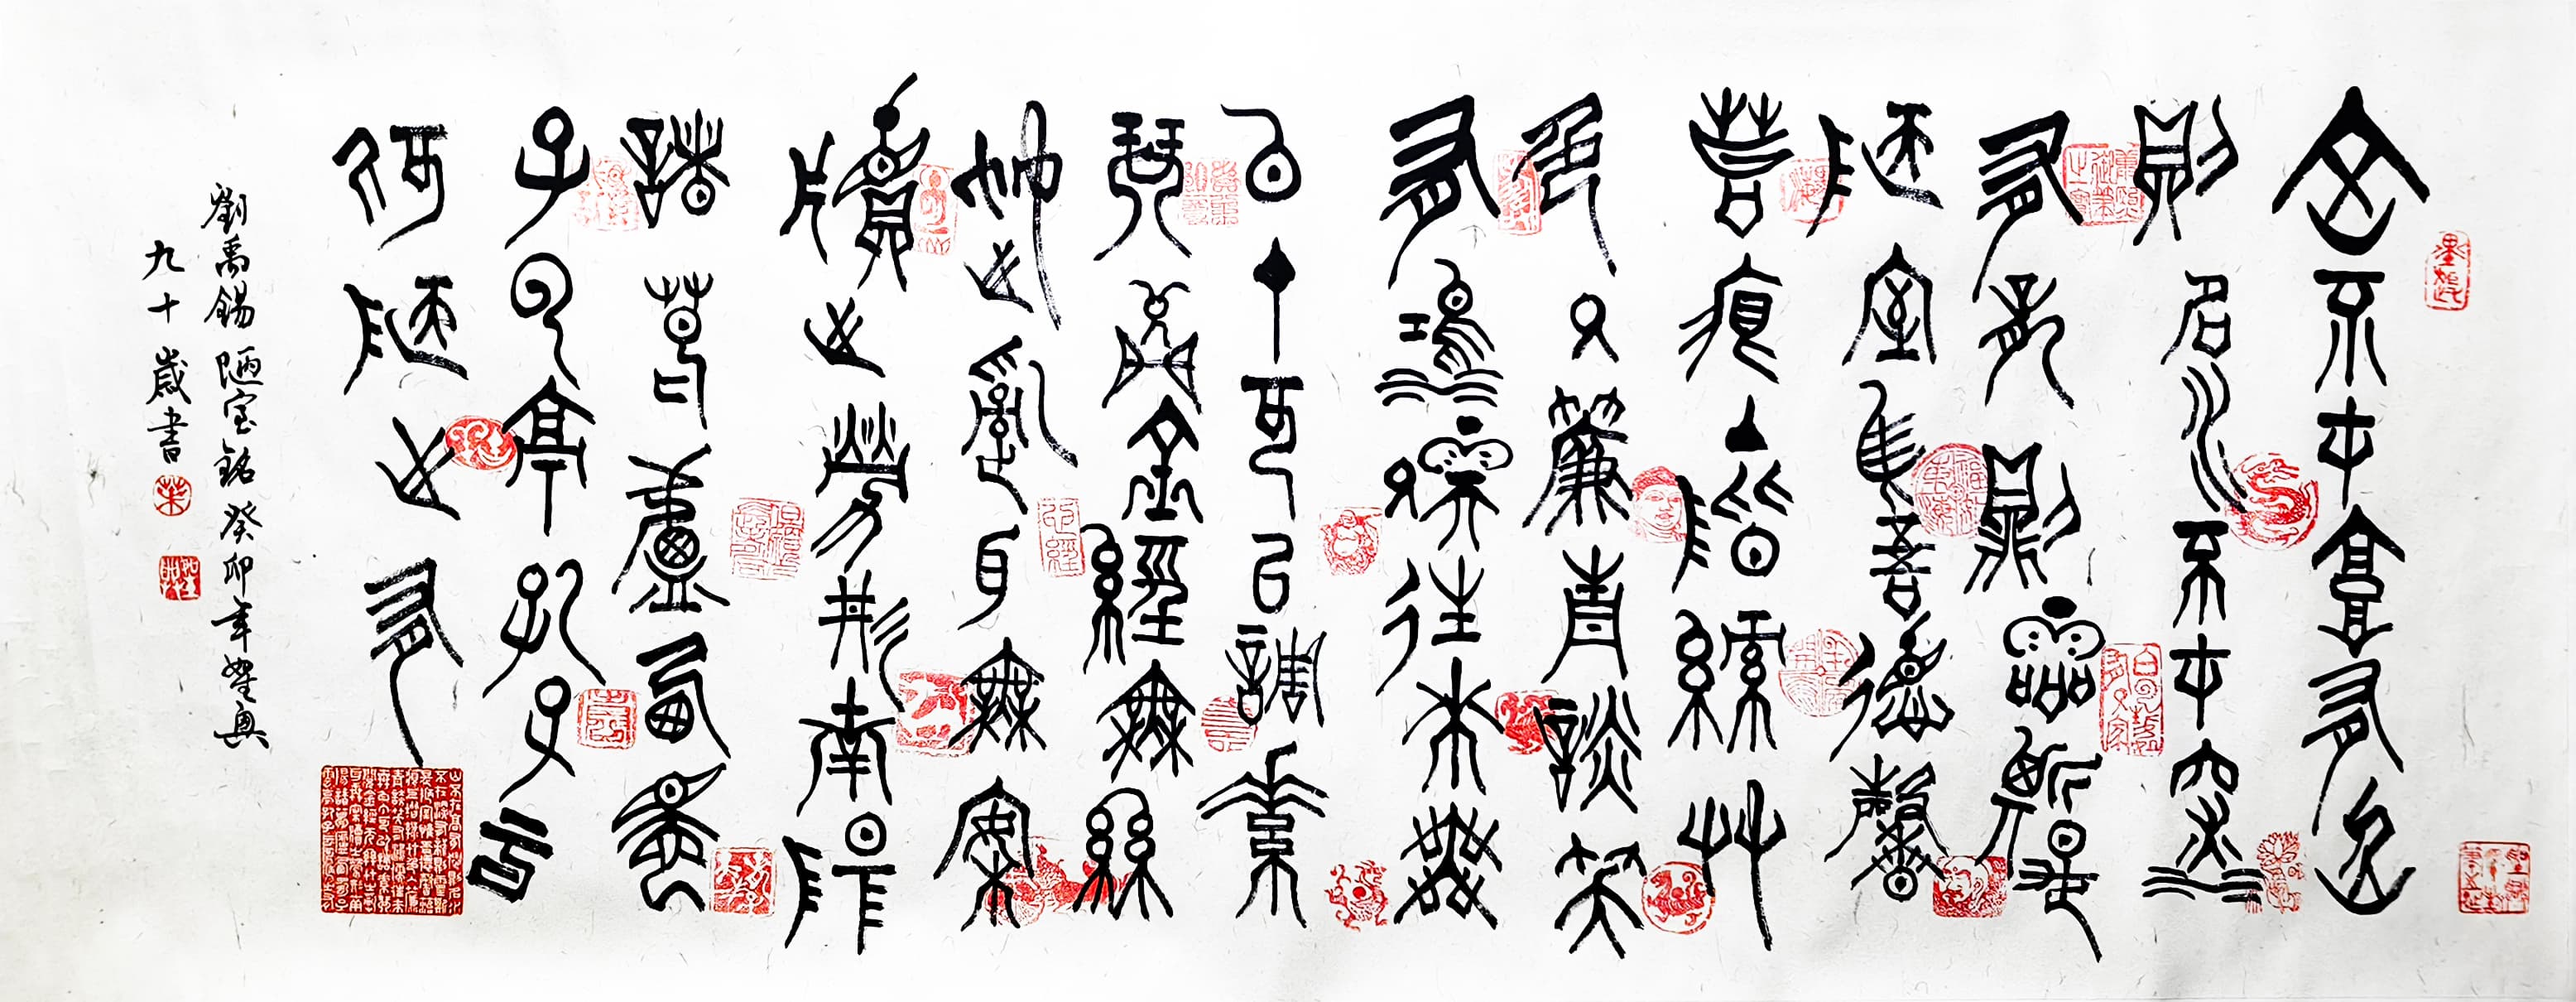 山不在高有仙
則名水不在深
有龍則靈斯是
陋室惟吾德馨
苔痕上階綠草
色入簾青談笑
有鴻儒往來無
白丁可以調素
琴閱金經無絲
竹之亂耳無案
牘之勞形南陽
諸葛廬西蜀
子雲亭孔子云
何陋之有
劉禹錫 陋室銘 癸卯年
九十歲書